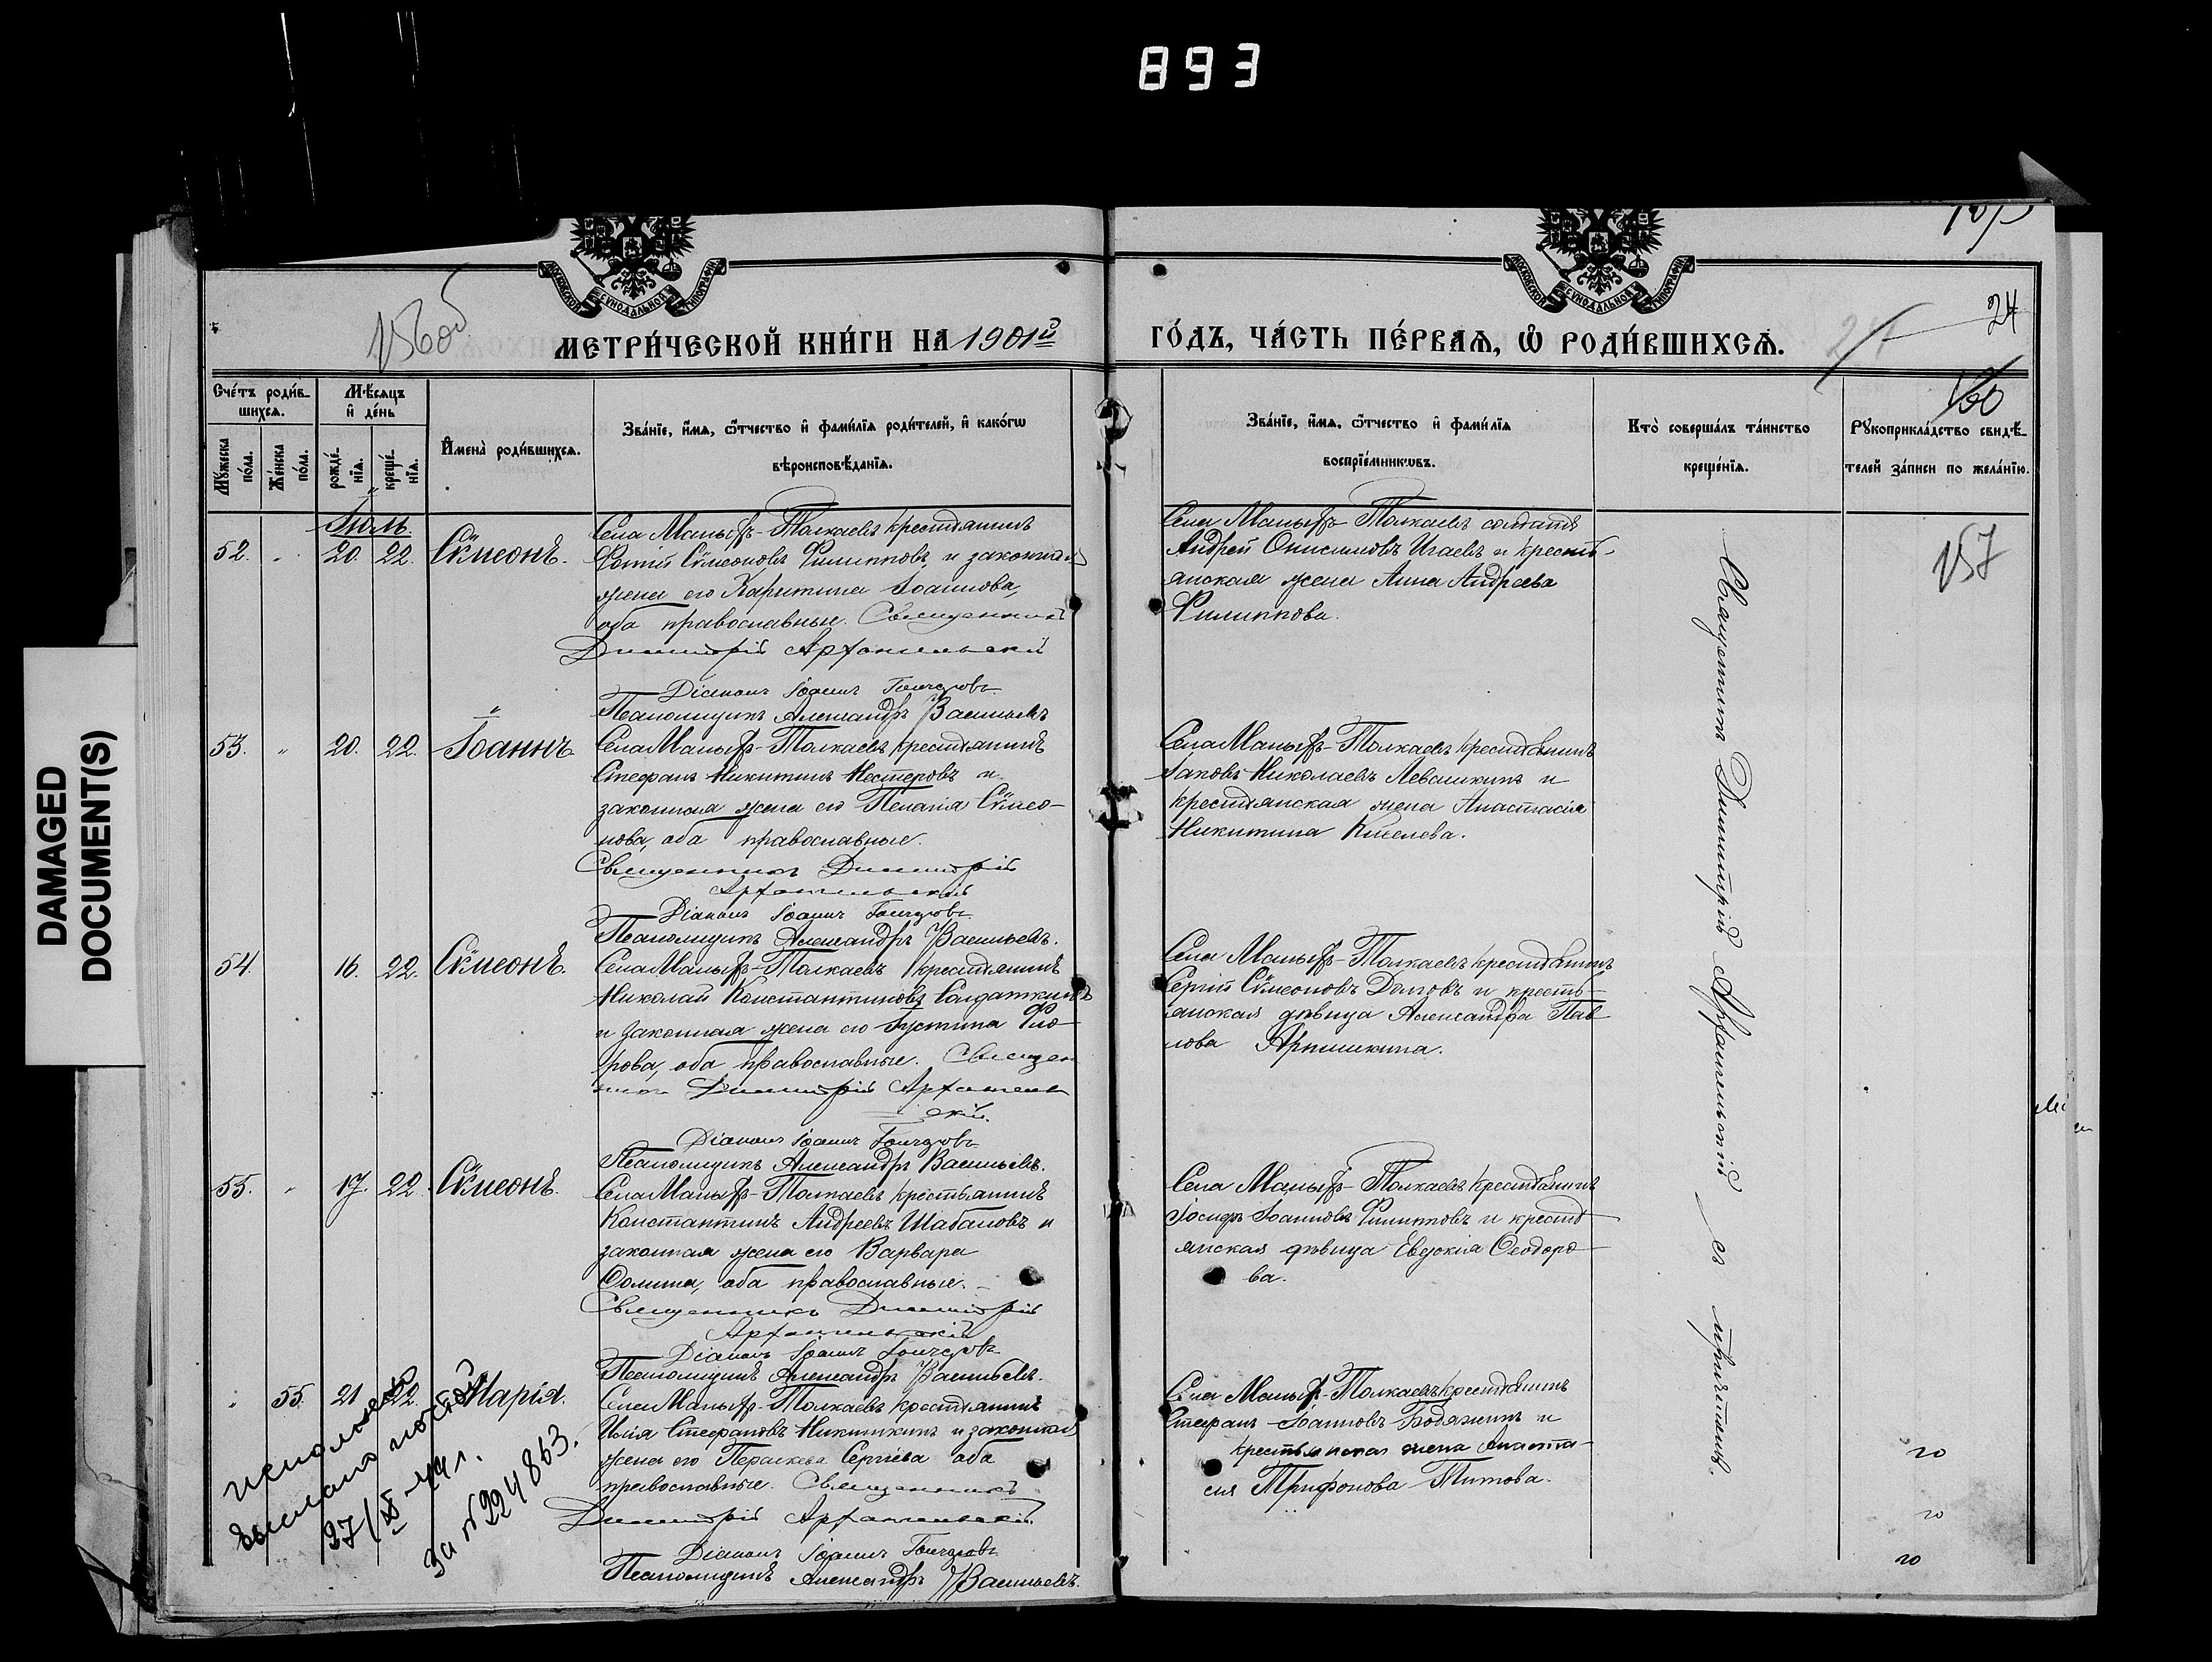 893
DAMAGED
DOCUMENT(S)
156об
24
МЕТРИ́ЧЕСКОЙ КНИ́ГИ НА 1901й
ГО́ДЪ, ЧА́СТЬ ПЕ́РВАѦ, Ѡ҆ РОДИ́ВШИХСѦ.
Сче́тъ роди́в-
шихсѧ.
Мꙋжеска по́ла.
Же́нска по́ла.
Мѣ́сѧцъ и҆ де́нь
рожде́нїѧ.
креще́нїѧ.
И҆мена̀ роди́вшихсѧ.
Зва́нїе, и҆́мѧ, ѻ҆́тчество и҆ фами́лїѧ роди́телей, и҆ како́гѡ
вѣроисповѣ́данїѧ.
Зва́нїе, и҆́мѧ, ѻ҆́тчество и҆ фами́лїѧ
воспрїе́мникѡвъ.
Кто̀ соверша́лъ та́инство
креще́нїѧ.
Рꙋкоприкла́дство свидѣ́-
телей за́писи по жела́нїю.
157
Іюль.
52. 20. 22. Сѵмеонъ.
Села Малыхъ-Толкаевъ крестьянинъ
Фотій Сѵмеоновъ Филипповъ и законная
жена его Харитина Іоаннова,
оба православные. Священникъ
Димитрій Архангельскій
Діаконъ Іоаннъ Гончаровъ
Псаломщикъ Александръ Васильевъ
Села Малыхъ-Толкаевъ солдатъ
Андрей Онисимовъ Игаевъ и кресть-
янская жена Анна Андреева
Филиппова.
53. 20. 22. Іоаннъ
Села Малыхъ-Толкаевъ крестьянинъ
Стефанъ Никитинъ Нестеровъ и
законная жена его Пелагія Сѵмео-
нова, оба православные.
Священникъ Димитрій
Архангельскій
Діаконъ Іоаннъ Гончаровъ
Псаломщикъ Александръ Васильевъ.
Села Малыхъ-Толкаевъ крестьянинъ
Іаковъ Николаевъ Левашкинъ и
крестьянская жена Анастасія
Никитина Киселева.
54. 16. 22. Сѵмеонъ.
Села Малыхъ-Толкаевъ крестьянинъ
Николай Константиновъ Солдаткинъ
и законная жена его Іустина Фло-
рова, оба православные. Священ
никъ Димитрій Архангель
скій.
Діаконъ Іоаннъ Гончаровъ
Псаломщикъ Александръ Васильевъ.
Села Малыхъ-Толкаевъ крестьянинъ
Сергій Сѵмеоновъ Долговъ и кресть-
янская дѣвица Александра Пав
лова
55. 17. 22. Сѵмеонъ.
Села Малыхъ-Толкаевъ крестьянинъ
Константинъ Андреевъ Шабановъ и
законная жена его Варвара
Ѳомина, оба православные.
Священникъ Димитрій
Архангельскій
Діаконъ Іоаннъ Гончаровъ
Псаломщикъ Александръ Васильевъ.
Села Малыхъ-Толкаевъ крестьянинъ
Іосифъ Іоанновъ Филипповъ и кресть
янская дѣвица Евдокія Ѳеодоро-
ва.
55. 21 22. Марія.
Села Малыхъ-Толкаевъ крестьянинъ
Илія Стефановъ Никишкинъ и законная
жена его Параскева Сергіева оба
православные. Священникъ
Димитрій Архангельскій.
Діаконъ Іоаннъ Гончаровъ
Псаломщикъ Александръ Васильевъ.
Села Малыхъ-Толкаевъ крестьянинъ
Стефанъ Іоанновъ Бодяжинъ и
крестьянская жена Анаста-
сія Трифонова Титова.
Священникъ Димитрій Архангельскій съ причтомъ.
выслано почтой
27/XI-44 г.
За № 224863.